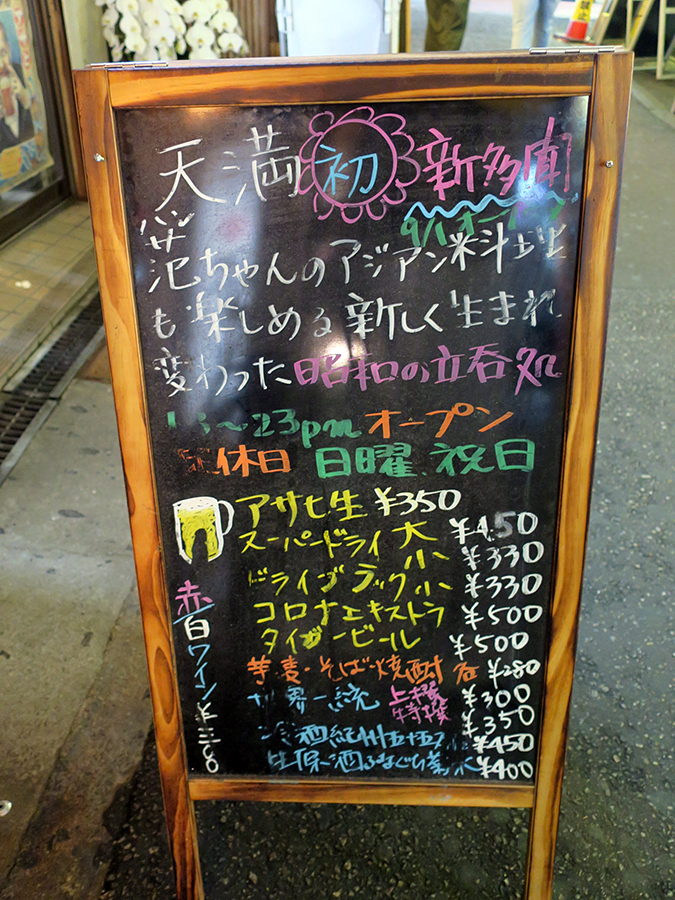 天満 初 新多聞
9/1オープン
范ちゃんのアジアン料理
も楽しめる新しく生まれ
変わった昭和の立呑処
13〜23pm オープン
定休日 日曜、祝日
アサヒ生 ¥350
スーパードライ 大 ¥450
小 ¥330
ドライブラック小 ¥330
コロナエキストラ ¥500
タイガービール ¥500
芋麦・そば・焼酎 各 ¥280
世界一統 上撰 ¥300
特撰 ¥350
冷酒紀州五十五万石 ¥450
生保酒 ¥400
赤白ワイン ¥300